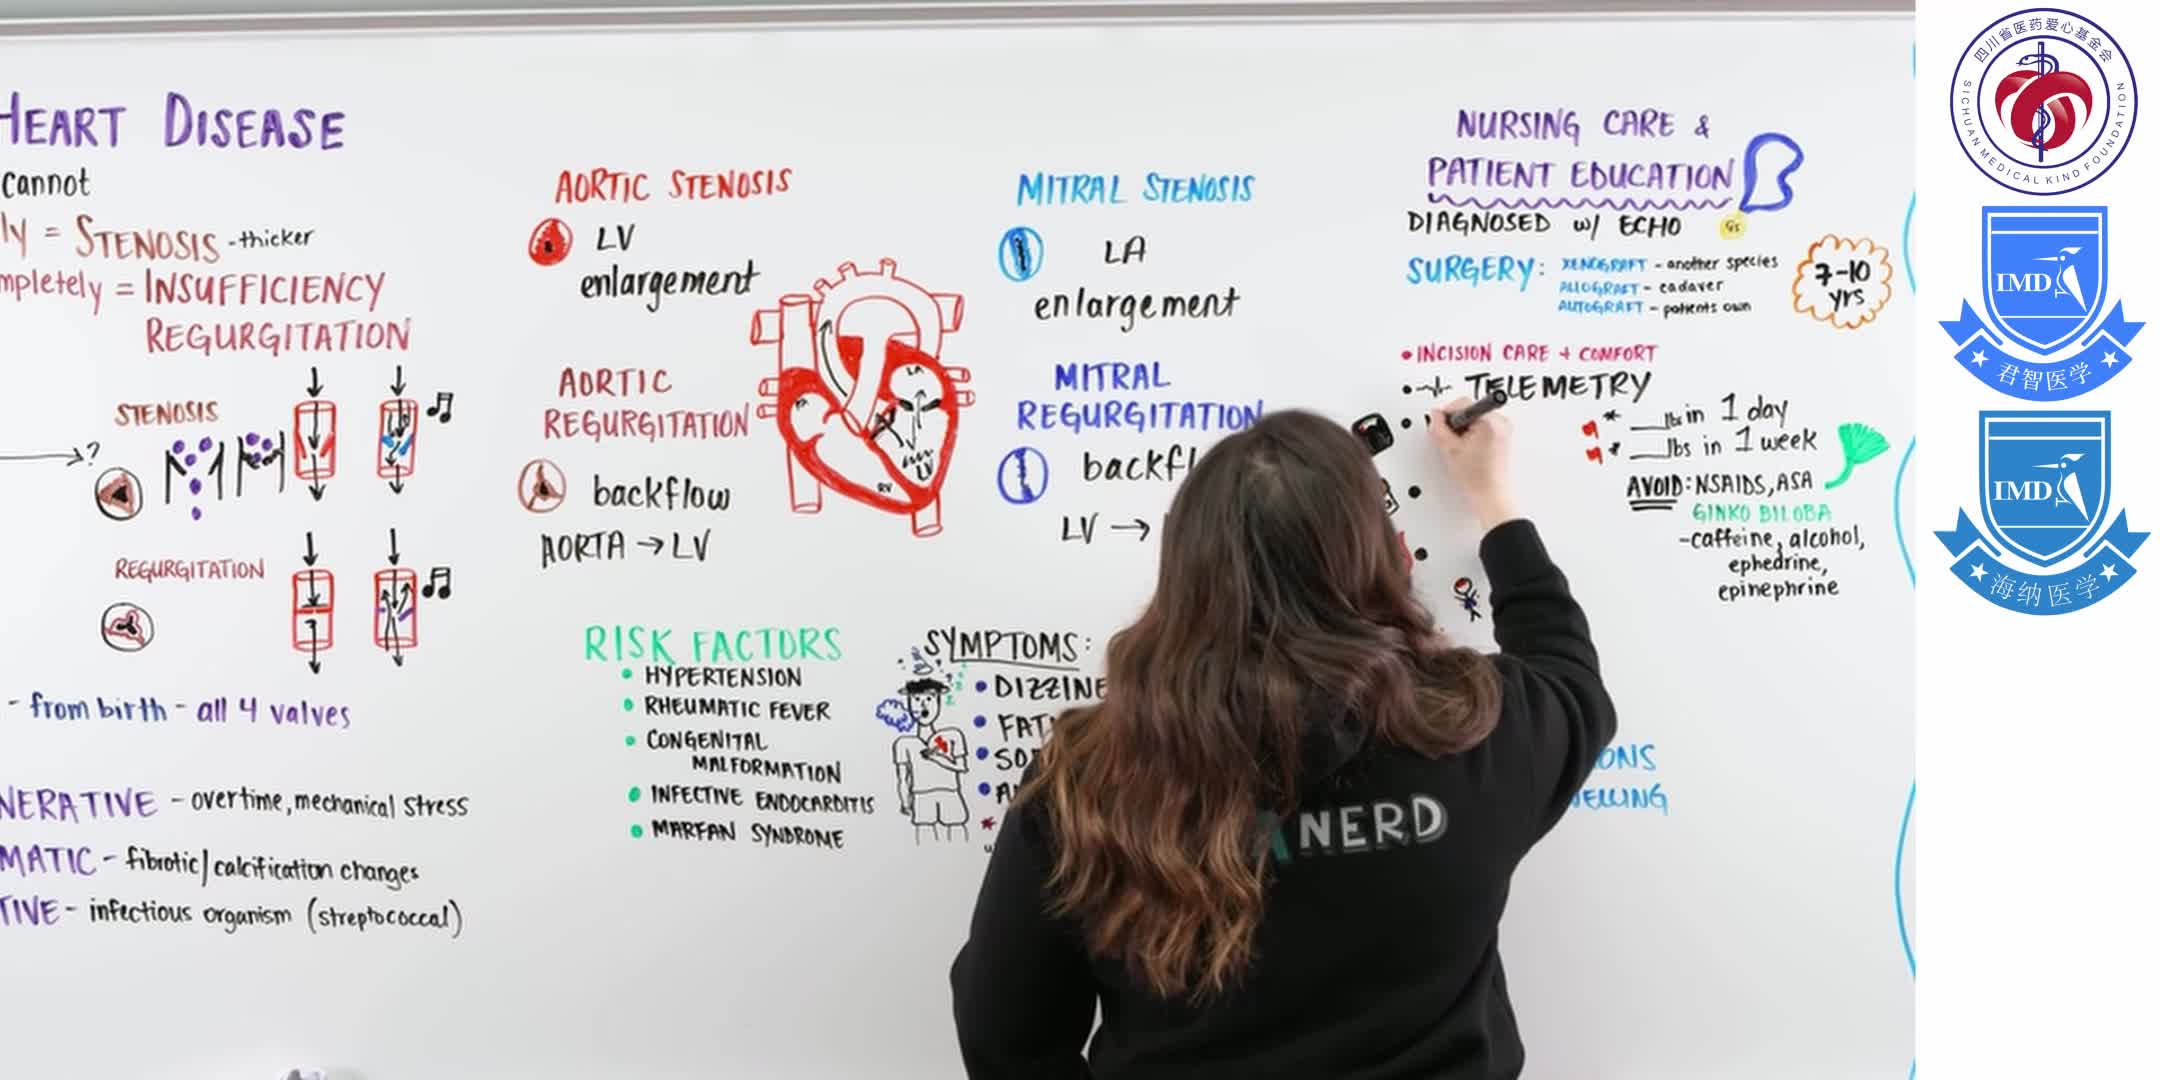 HEART DISEASE
cannot
ly = STENOSIS - thicker
mpletely = INSUFFICIENCY
REGURGITATION
STENOSIS
?
REGURGITATION
- from birth - all 4 valves
NERATIVE - overtime, mechanical stress
MATIC - fibrotic/calcification changes
TIVE - infectious organism (streptococcal)
AORTIC STENOSIS
LV
enlargement
AORTIC
REGURGITATION
backflow
AORTA → LV
LA
LV
RV
MITRAL STENOSIS
LA
enlargement
MITRAL
REGURGITATION
backfl
LV →
RISK FACTORS
• HYPERTENSION
• RHEUMATIC FEVER
• CONGENITAL
MALFORMATION
• INFECTIVE ENDOCARDITIS
• MARFAN SYNDROME
SYMPTOMS:
• DIZZINE
• FAT
• SO
• A
NURSING CARE &
PATIENT EDUCATION
DIAGNOSED w/ ECHO
SURGERY: XENOGRAFT - another species
ALLOGRAFT - cadaver
AUTOGRAFT - patients own
7-10
yrs
• INCISION CARE + COMFORT
• TELEMETRY
* __lbs in 1 day
* __lbs in 1 week
AVOID: NSAIDS, ASA
GINKO BILOBA
- caffeine, alcohol,
ephedrine,
epinephrine
ONS
ELLING
NERD
四川省医药爱心基金会
SICHUAN MEDICAL KIND FOUNDATION
IMD
君智医学
IMD
海纳医学